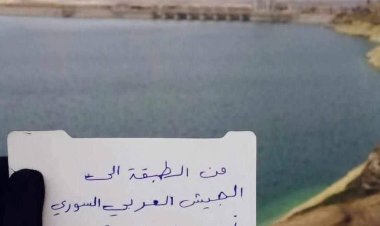 من الطبقة الى
الجيش العربي السوري